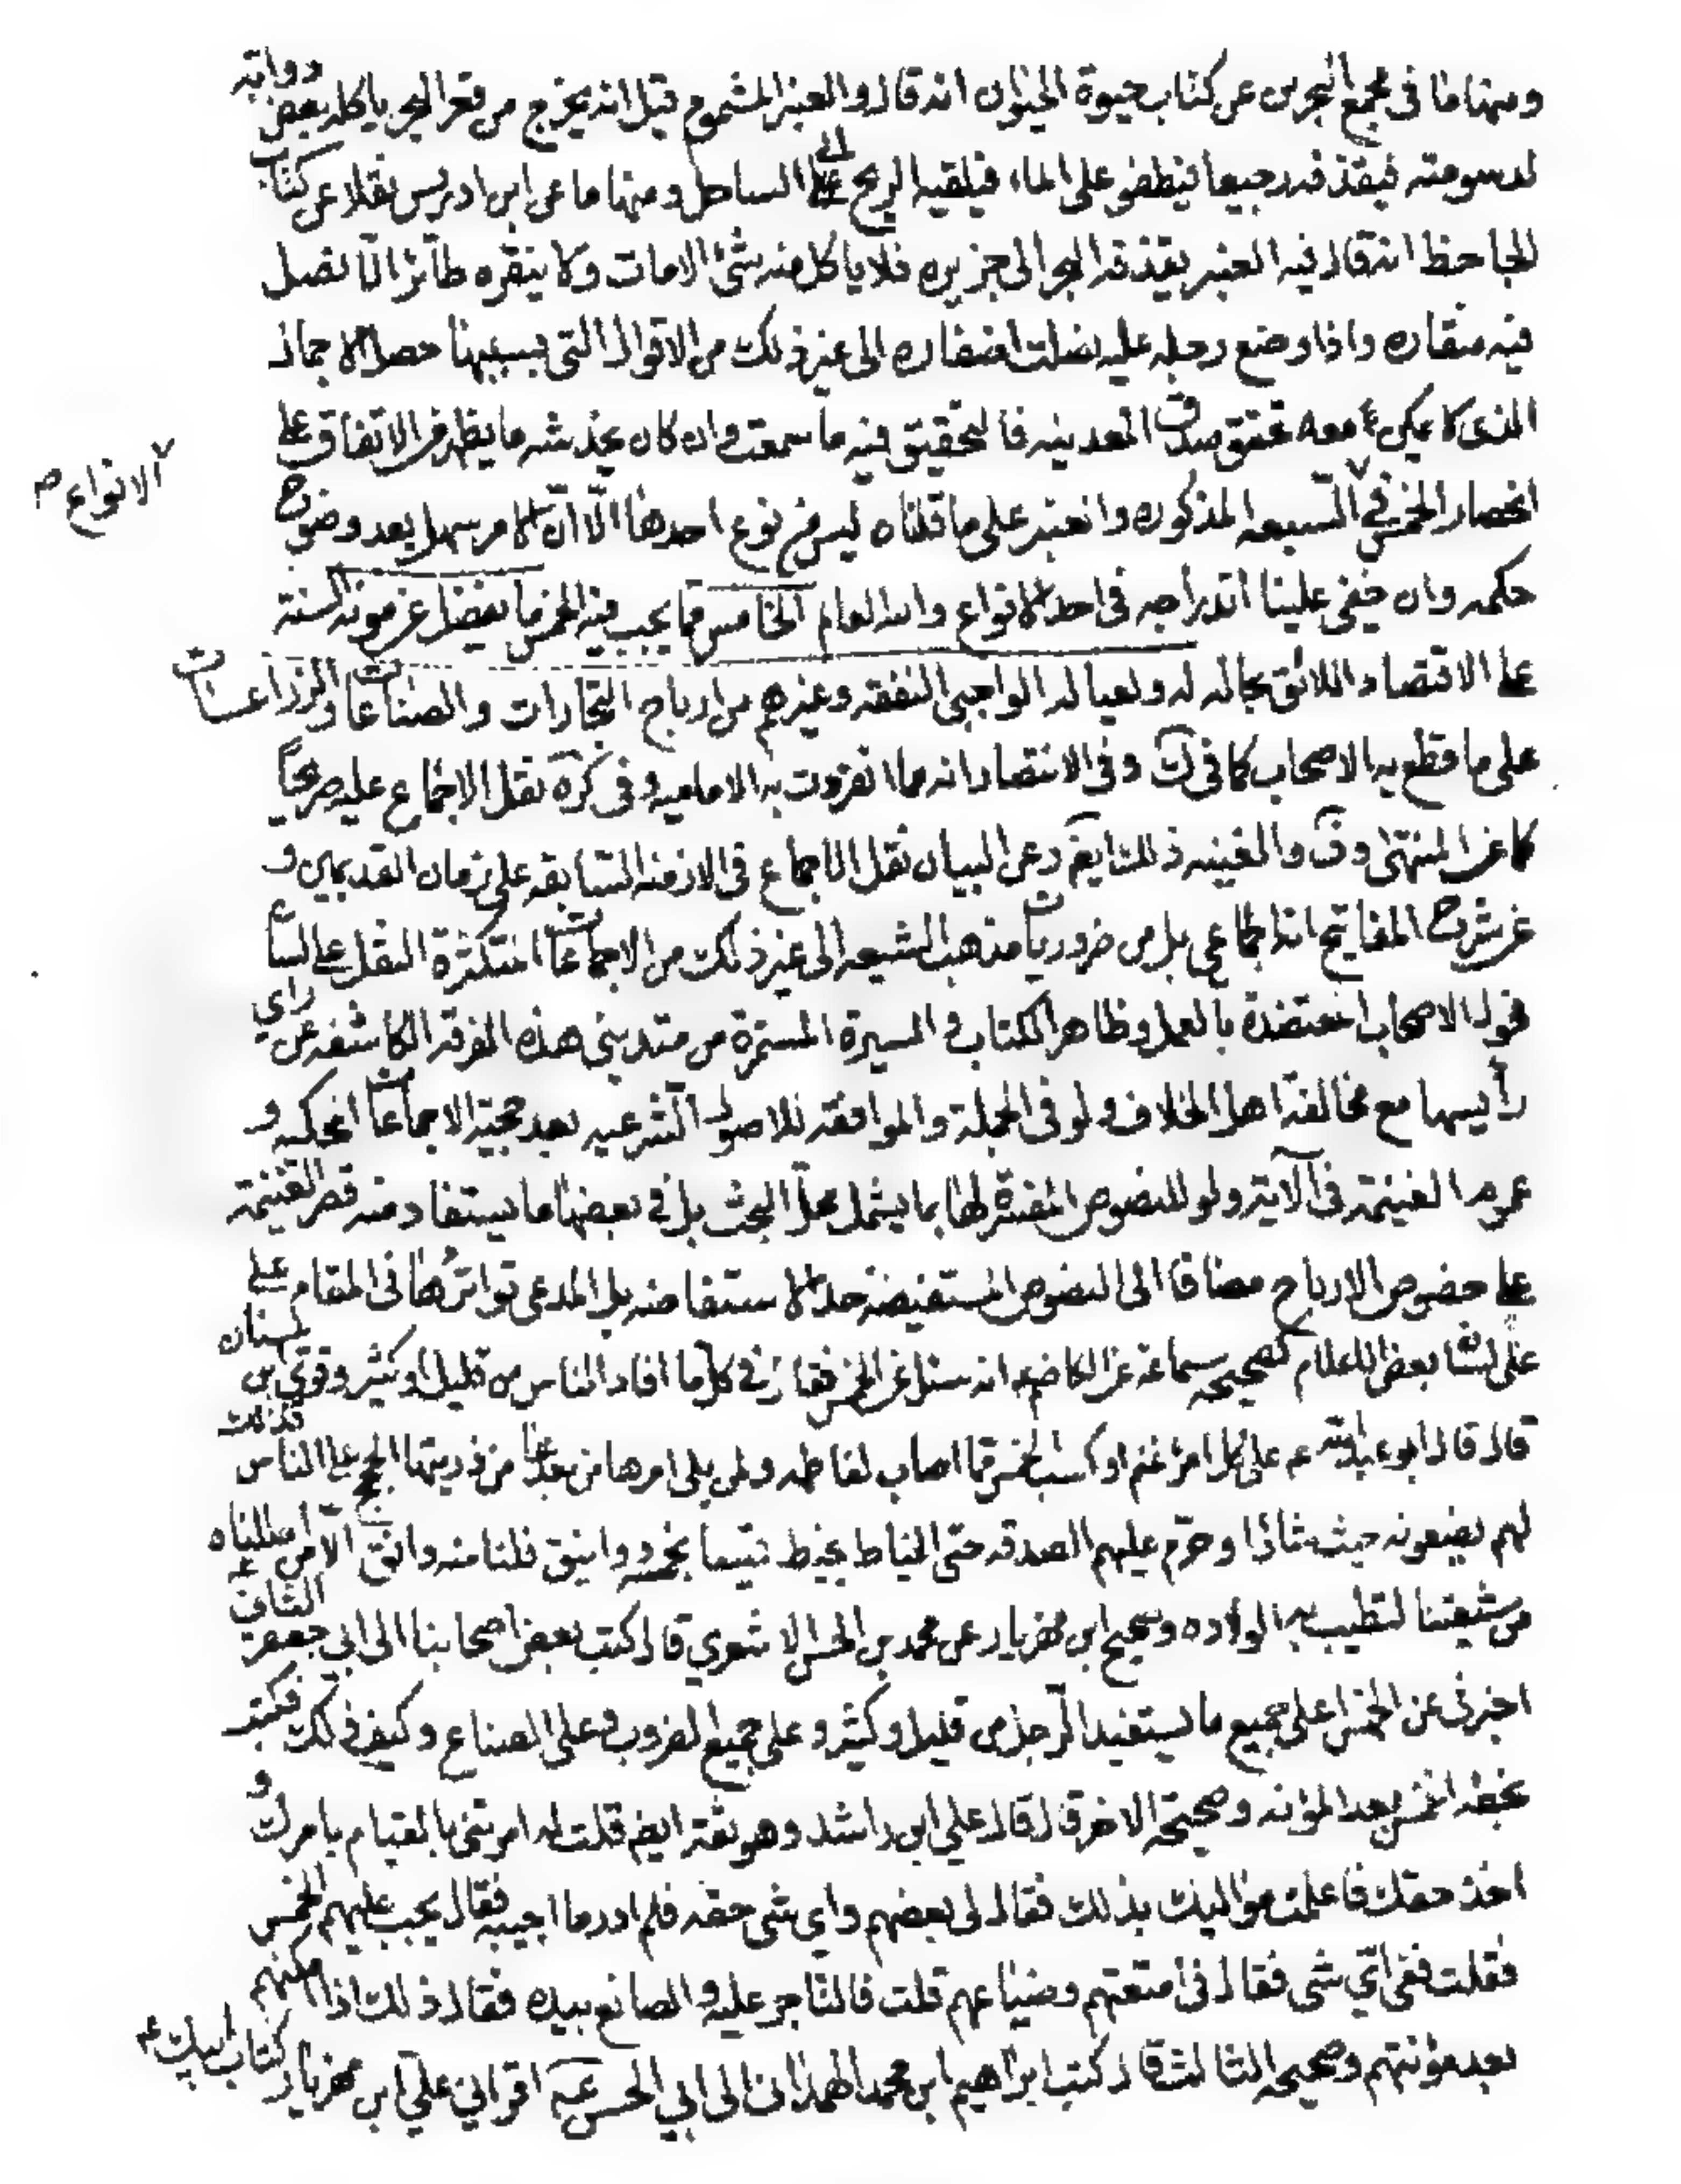 ومنها ما فى مجمع البحرين عن كتاب حيوة الحيوان انه قال والعنبر المشموم قيل انه يخرج من قعر البحر ياكله بعض دوابه
لدسومته فيقذفه رجيعا فيطفو على الماء فيلقيه الريح الى الساحل ومنها ما عن ابن ادريس نقلا عن كتاب
الجاحظ انه قال فيه العنبر يقذفه البحر الى جزيره فلا ياكل منه شئ الامات ولا ينقره طائر الا نصل
فيه منقاره واذا وضع رجله عليه نصلت اضفاره الى غير ذلك من الاقوال التى بسببها حصل الاجمال
الذى لا يمكن معه تحقق صدق المعدنيه فالتحقيق فيه ما سمعت وان كان يخدشه ما يظهر من الاتفاق على
انحصار الخمس فى السبعه المذكوره والعنبر على ما قلناه ليس من نوع احدها الا ان الامر سهل بعد وضوح
الانواع ص
حكمه وان خفى علينا اندراجه فى احد الانواع والله العالم الخامس مما يجب فيه الخمس ما يفضل عن مونه السنة
على الاقتصاد اللائق بحاله له ولعياله الواجبى النفقه وغيرهم من ارباح التجارات والصناعات والزراعات
على ما قطع به الاصحاب كما فى ك وفى الانتصار انه مما انفردت به الاماميه وفى كره نقل الاجماع عليه صريحاً
كما عن المنتهى وف والغنيه ذلك ايضم وعن البيان نقل الاجماع فى الازمنه السابقه على زمان القديمين و
عن شرح المفاتيح انه اجماعى بل من ضروريات مذهب الشيعه الى غير ذلك من الاجماعات المتكثرة النقل على لسان
فحول الاصحاب المعتضدة بالعمل وظاهر الكتاب والسيرة المستمرة من متدينى هذه الفرقه الكاشفه عن راي
رأيسها مع مخالفة اهل الخلاف ولو فى الجملة والموافقه للاصول الشرعيه بعد حجية الاجماعات المحكيه و
عموم الغنيمة فى الآية ولو للنصوص المفسرة لها بما يشمل محل البحث بل فى بعضها ما يستفاد منه قصر الغنيمة
على خصوص الارباح مضافا الى النصوص المستفيضة حد الاستفاضه بل المدعى تواترها فى المقام على
على لسان بعض الاعلام كصحيحه سماعة عن الكاضم ع انه سئل عن الخمس فقال فى كل ما افاد الناس من قليل او كثير وقوي بن سنان
قال قال ابو عبدالله عم على كل امرء غنم او كسب الخمس مما اصاب لفاطمه ولمن يلى امرها من بعدها من ذريتها الحجج على الناس فذلك
لهم يضعونه حيث شاؤا وحرم عليهم الصدقه حتى الخياط يخيط قميصا بخمسه دوانيق فلنا منه دانق الا من احللناه
من شيعتنا لتطيب به الولاده وصحيح ابن مهزيار عن محمد بن الحسن الاشعري قال كتب بعض اصحابنا الى ابي جعفر الثانى ع
اخبرنى عن الخمس اعلى جميع ما يستفيد الرجل من قليل وكثير وعلى جميع الضروب وعلى الصناع وكيف ذلك فكتب
بخطه الخمس بعد المؤنه وصحيحته الاخر قال قال علي ابن راشد وهو ثقة ايضم قلت له امرتنى بالقيام بامرك و
اخذ حقك فاعلمت مواليك بذلك فقال لى بعضهم واي شى حقه فلم ادر ما اجيبه فقال يجب عليهم الخمس
فقلت ففى اي شى فقال فى امتعتهم وضياعهم قلت فالتاجر عليه والصانع بيده فقال ذلك اذا امكنهم
بعد مؤنتهم وصحيحه الثالث قال كتب ابراهيم ابن محمد الهمدانى الى ابي الحسن ع اقرانى علي ابن مهزيار كتاب ابيك ع